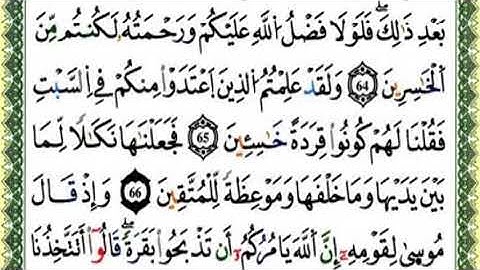 بَعْدِ ذَٰلِكَ ۖ فَلَوْلَا فَضْلُ اُ۬للَّهِ عَلَيْكُمْ وَرَحْمَتُهُۥ لَكُنتُم مِّنَ
اَ۬لْخَٰسِرِينَ 64 وَلَقَدْ عَلِمْتُمُ اُ۬لذِينَ اَ۪عْتَدَوْا۟ مِنكُمْ فِے اِ۬لسَّبْتِ
فَقُلْنَا لَهُمْ كُونُوا۟ قِرَدَةً خَٰسِـِٔينَ 65 فَجَعَلْنَٰهَا نَكَٰلًا لِّمَا
بَيْنَ يَدَيْهَا وَمَا خَلْفَهَا وَمَوْعِظَةً لِّلْمُتَّقِينَ 66 وَإِذْ قَالَ
مُوسَىٰ لِقَوْمِهِۦٓ إِنَّ اَ۬للَّهَ يَامُرُكُمُۥٓ أَن تَذْبَحُوا۟ بَقَرَةً ۖ قَالُوٓا۟ أَتَتَّخِذُنَا